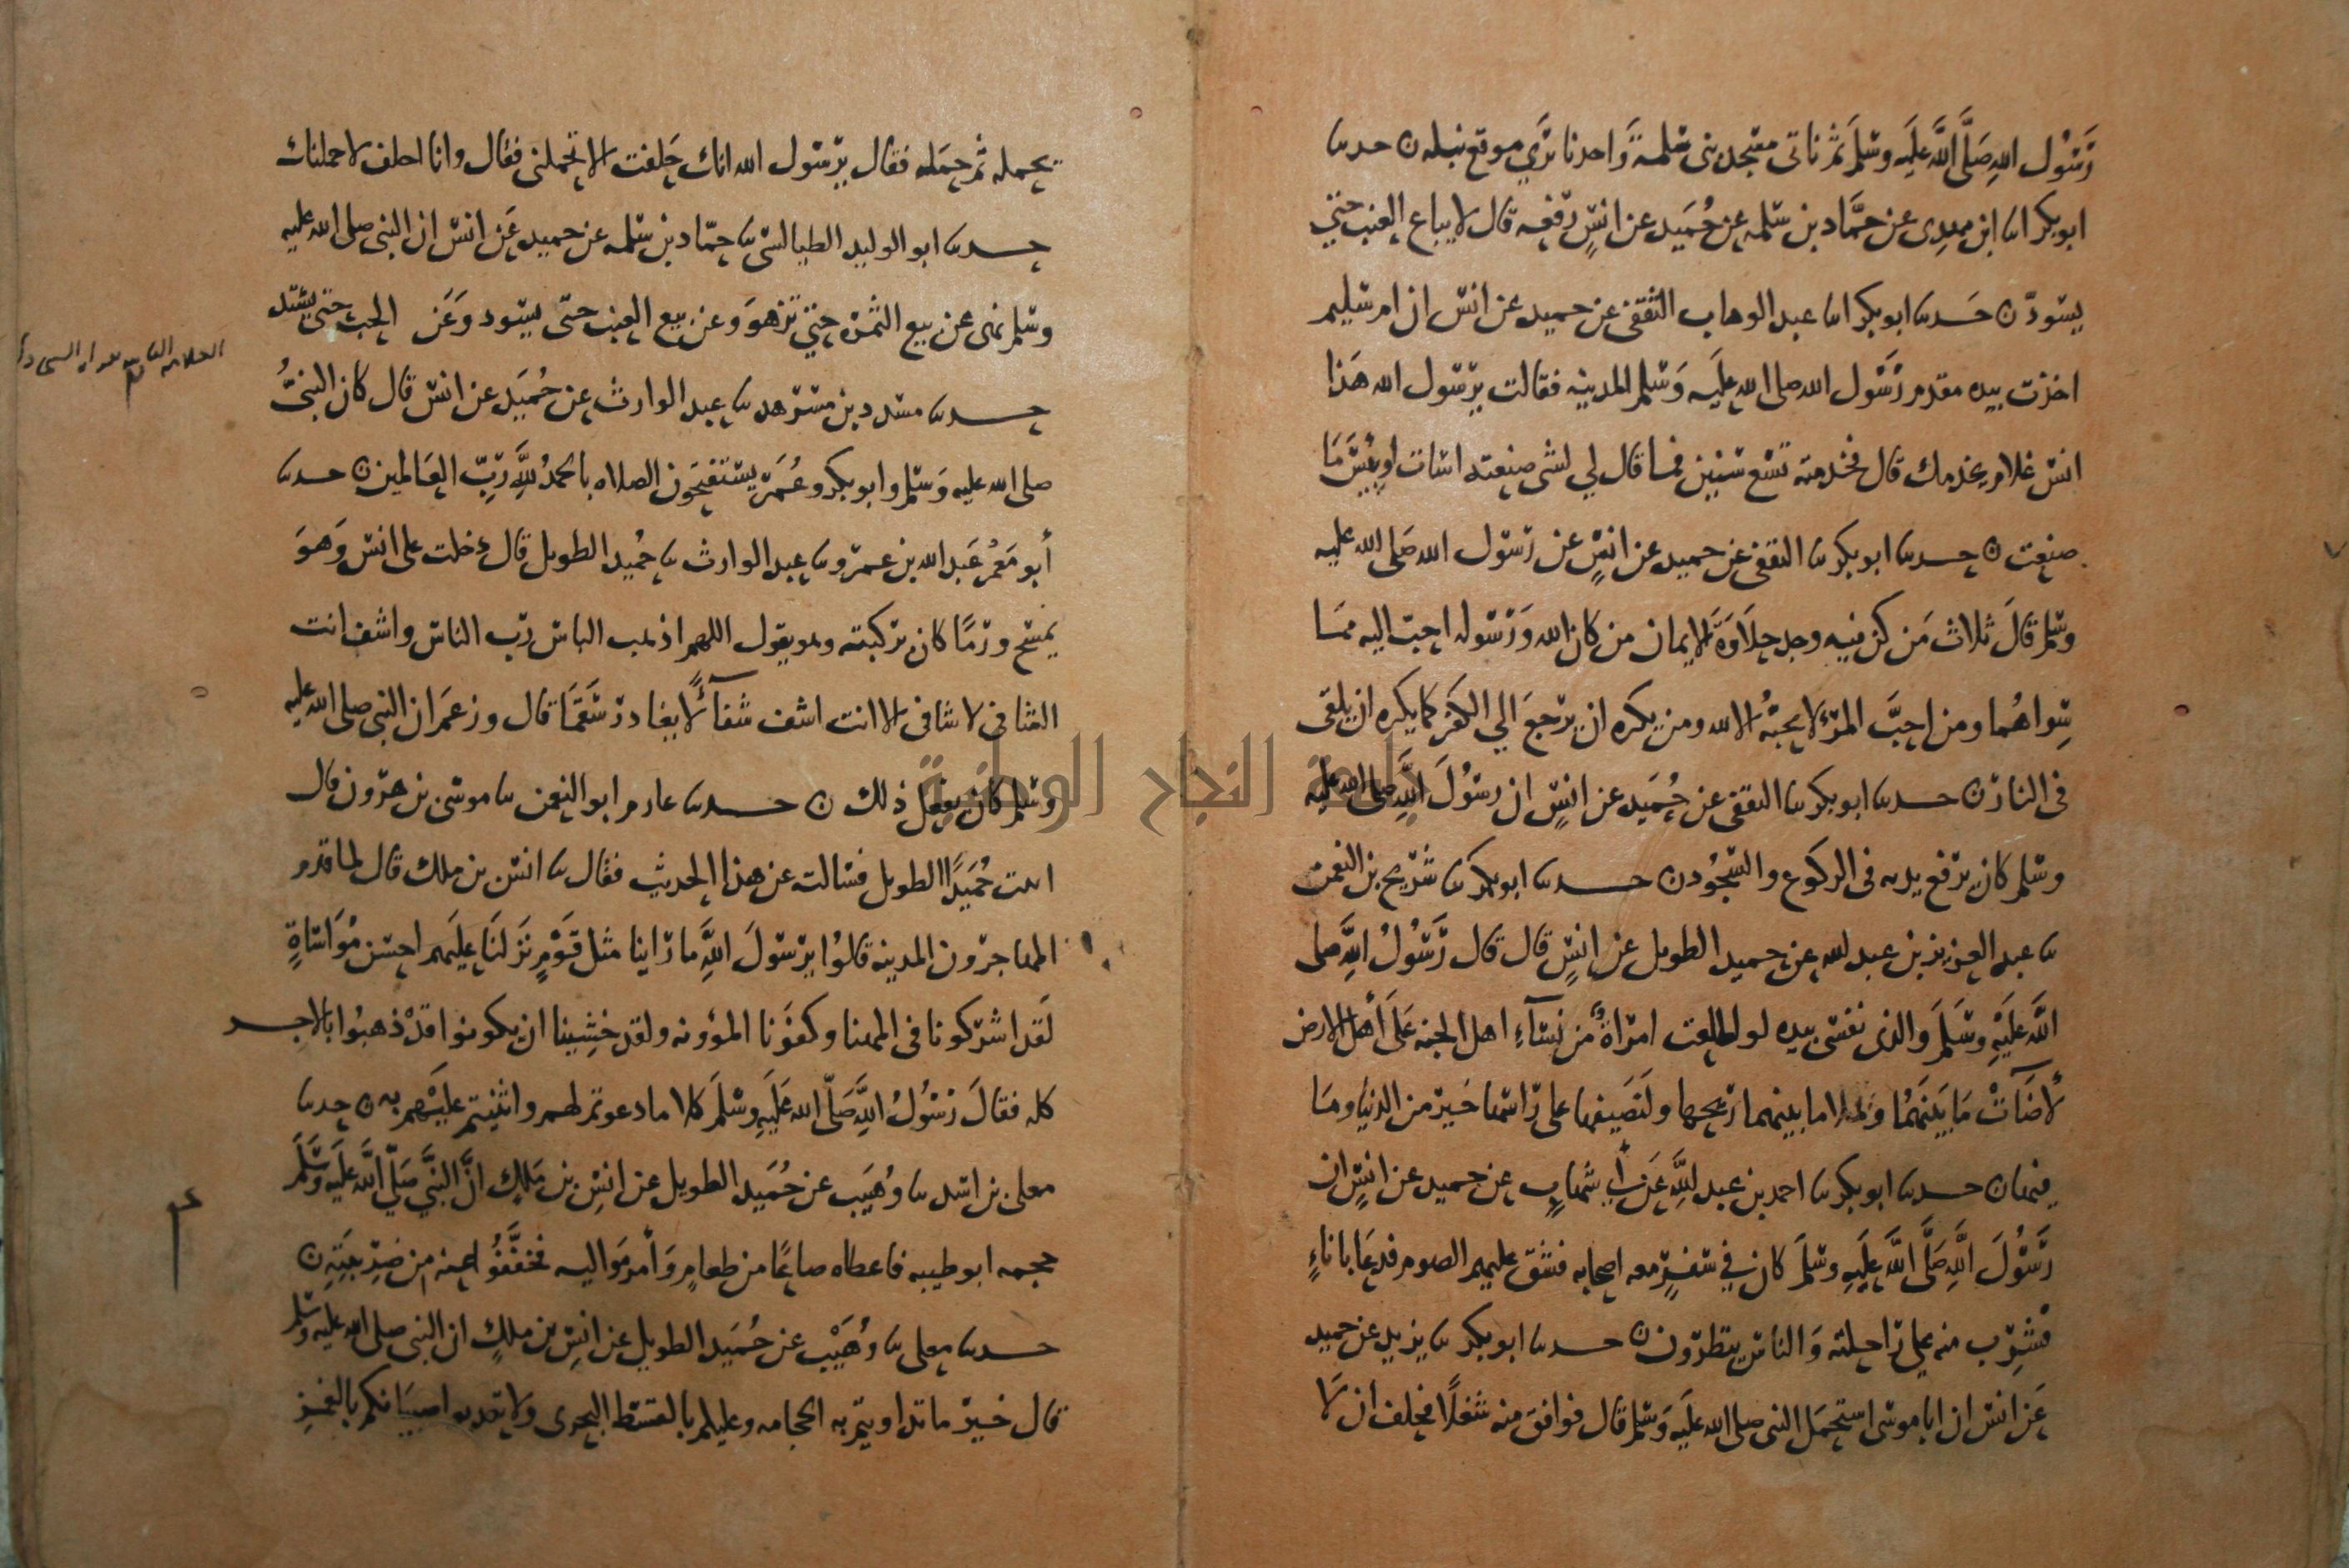 رَسُول اللهِ صَلَّى اللَّه عَلَيه وسَلَّمَ ثم ناتى مسجد بنى سَلمةَ وَاحدنا يَرَي موقع نبله ن حدثنا
ابو بكر انا ابن مهدِى عن حمَّاد بن سلمه عن حُمَيد عن انسٍ رفعه قال لا يباع العنب حتي
يسودّ ن حَدثنا ابو بكر انا عبد الوهاب الثقفى عن حميد عن انس ان ام سليم
اخذت بيده مقدم رَسُول الله صلى الله علَيه وَسلم المدينه فقالت يرسول الله هَذا
انس غلام يخدمك قال فخدمته تسْع سنين فما قال لي لشى صنعته اسات او بِيسَ مَا
صنعت ن حدثنا ابو بكر ثنا الثقفى عن حميد عن انسٍ عن رسول الله صَلى الله عليه
وسلم قالَ ثلاث مَن كن فيه وجد حلاَوَةَ الايمان من كان الله وَرَسُوله احبّ اليه ممَا
سِواهُما ومن احبَّ المرْء لا يحبّهُ الا لله ومن يكره ان يرجعَ الي الكفر كما يكره ان يلقى
فى النار ن حدثنا ابو بكر ثنا الثقفى عن حُمَيد عن انسٍ ان رسُولَ اللَّهِ صلى الله عليه
وسلم كان يرفع يديه فى الركوع والسّجُود ن حدثنا ابو بكر ثنا شريح بن النعمن
ثنا عبد العزيز بن عبد لله عن حميد الطويل عن انسٍ قال قال رَّسُولُ اللَّهِ صلى
اللَّه عَلَيْهِ وسَلَّمَ وَالذى نفسى بيده لو اطلعت امرَاةٌ مِّن نّسَآءِ اهل الجنه عَلَى أهل الارض
لأَضَآتْ مَا بَينَهُمَا ولملا ما بينهما ريحها ولَنَصَيفها على رَاسها خَيرٌ من الدنيا ومَا
فيها ن حدثنا ابو بكر ثنا احمد بن عبد للَّهِ عَن أبِى شهابٍ عن حميد عن انسٍ ان
رَّسُولَ اللَّهِ صَلَّى اللَّه عَلَيهِ وسَلَّمَ كان في سَفرٍ معه اصحابه فشقّ عليهم الصوم فدعَا باناءٍ
فشرِب منه على رَاحلته وَالناس ينظرون ن حدثنا ابو بكر ثنا يزيد عن حميد
عَن انس ان ابا موسى استحمَل النبى صلى الله علَيه وَسلم قال فوافق منه شغلًا فحلف ان لَا
يحمله ثم حمَله فقال يرسول الله انك حَلفت الا تحملنى فقال وانا احلف لاحملنك
حدثنا ابو الوليد الطيالسى ثنا حمّاد بن سلمه عن حميد عَن انس ان النبى صلى الله عليه
وسلم نهى عن بيع الثمرة حتي تزهوَ وعن بيع العنب حتّى يسود وَعَن الحب حتى يشتد
حدثنا مسدد بن مسرهد ثنا عبد الوارث عن حُمَيد عن انس قال كان النبىُّ
صلى الله عليه وَسَلم وابو بكر وعُمَرَ يستفتِحَون الصلاه بالحمدُ للَّهِ رَبِّ العَالمين ن حدثنا
أبو مَعْمرٍ عَبد الله بن عمرو ثنا عبد الوارث ثنا حُمَيد الطويل قال دخلت على انس وَهوَ
يمسح ورمًا كان بركبته وهو يقول اللهم اذهب الباس رب الناس واشف انت
الشافى لا شافى الا انت اشف شفآءً لا يغادر سَقَمًا قال وزعمَ ان النبى صلى الله عليه
وسلم كان يفعل ذلك ن حدثنا عارم ابو النعمن ثنا موسى بن هرون قال
اتيت حُمَيدًا الطويل فسالته عن هذا الحديث فقال ثنا انس بن ملك قال لما قدم
المهاجرون المدينه قالُوا يرسولَ اللَّهِ ما راينا مثل قَوْمٍ نَزلنَا عليهم احسن مُوَاساةٍ
لَقد اشركونا فى المهنا وكفَونا المؤونه ولقد خشِينا ان يكونوا قدْ ذهبُوا بالاجر
كله فقالَ رَسُولُ اللَّهِ صَلَّى الله عَلَيهِ وسَلَّمَ كلا ما دعوتم لهم واثنيتم عليهم به ن حدثنا
معلى بن اسد ثنا وُهَيب عن حُمَيد الطويل عن انس بن مَلكٍ انَّ النَّبيَّ صَلَّى اللَّه عَلَيه وسَلَّمَ
حجمه ابو طيبه فاعطاه صاعًا من طعامٍ وَأمر مَواليه فخفَّفُوا عنه من ضرِيبَتِهِ ن
حدثنا معلى ثنا وُهَيْب عن حُمَيد الطويل عن انسِ بن ملكٍ ان النبى صلى الله عليه وسلم
قال خير ما تداويتم به الحجامه وعليكم بالقسط البحرى ولا تعذبوا صبيَانكم بالغمز
جامعة النجاح الوطنية